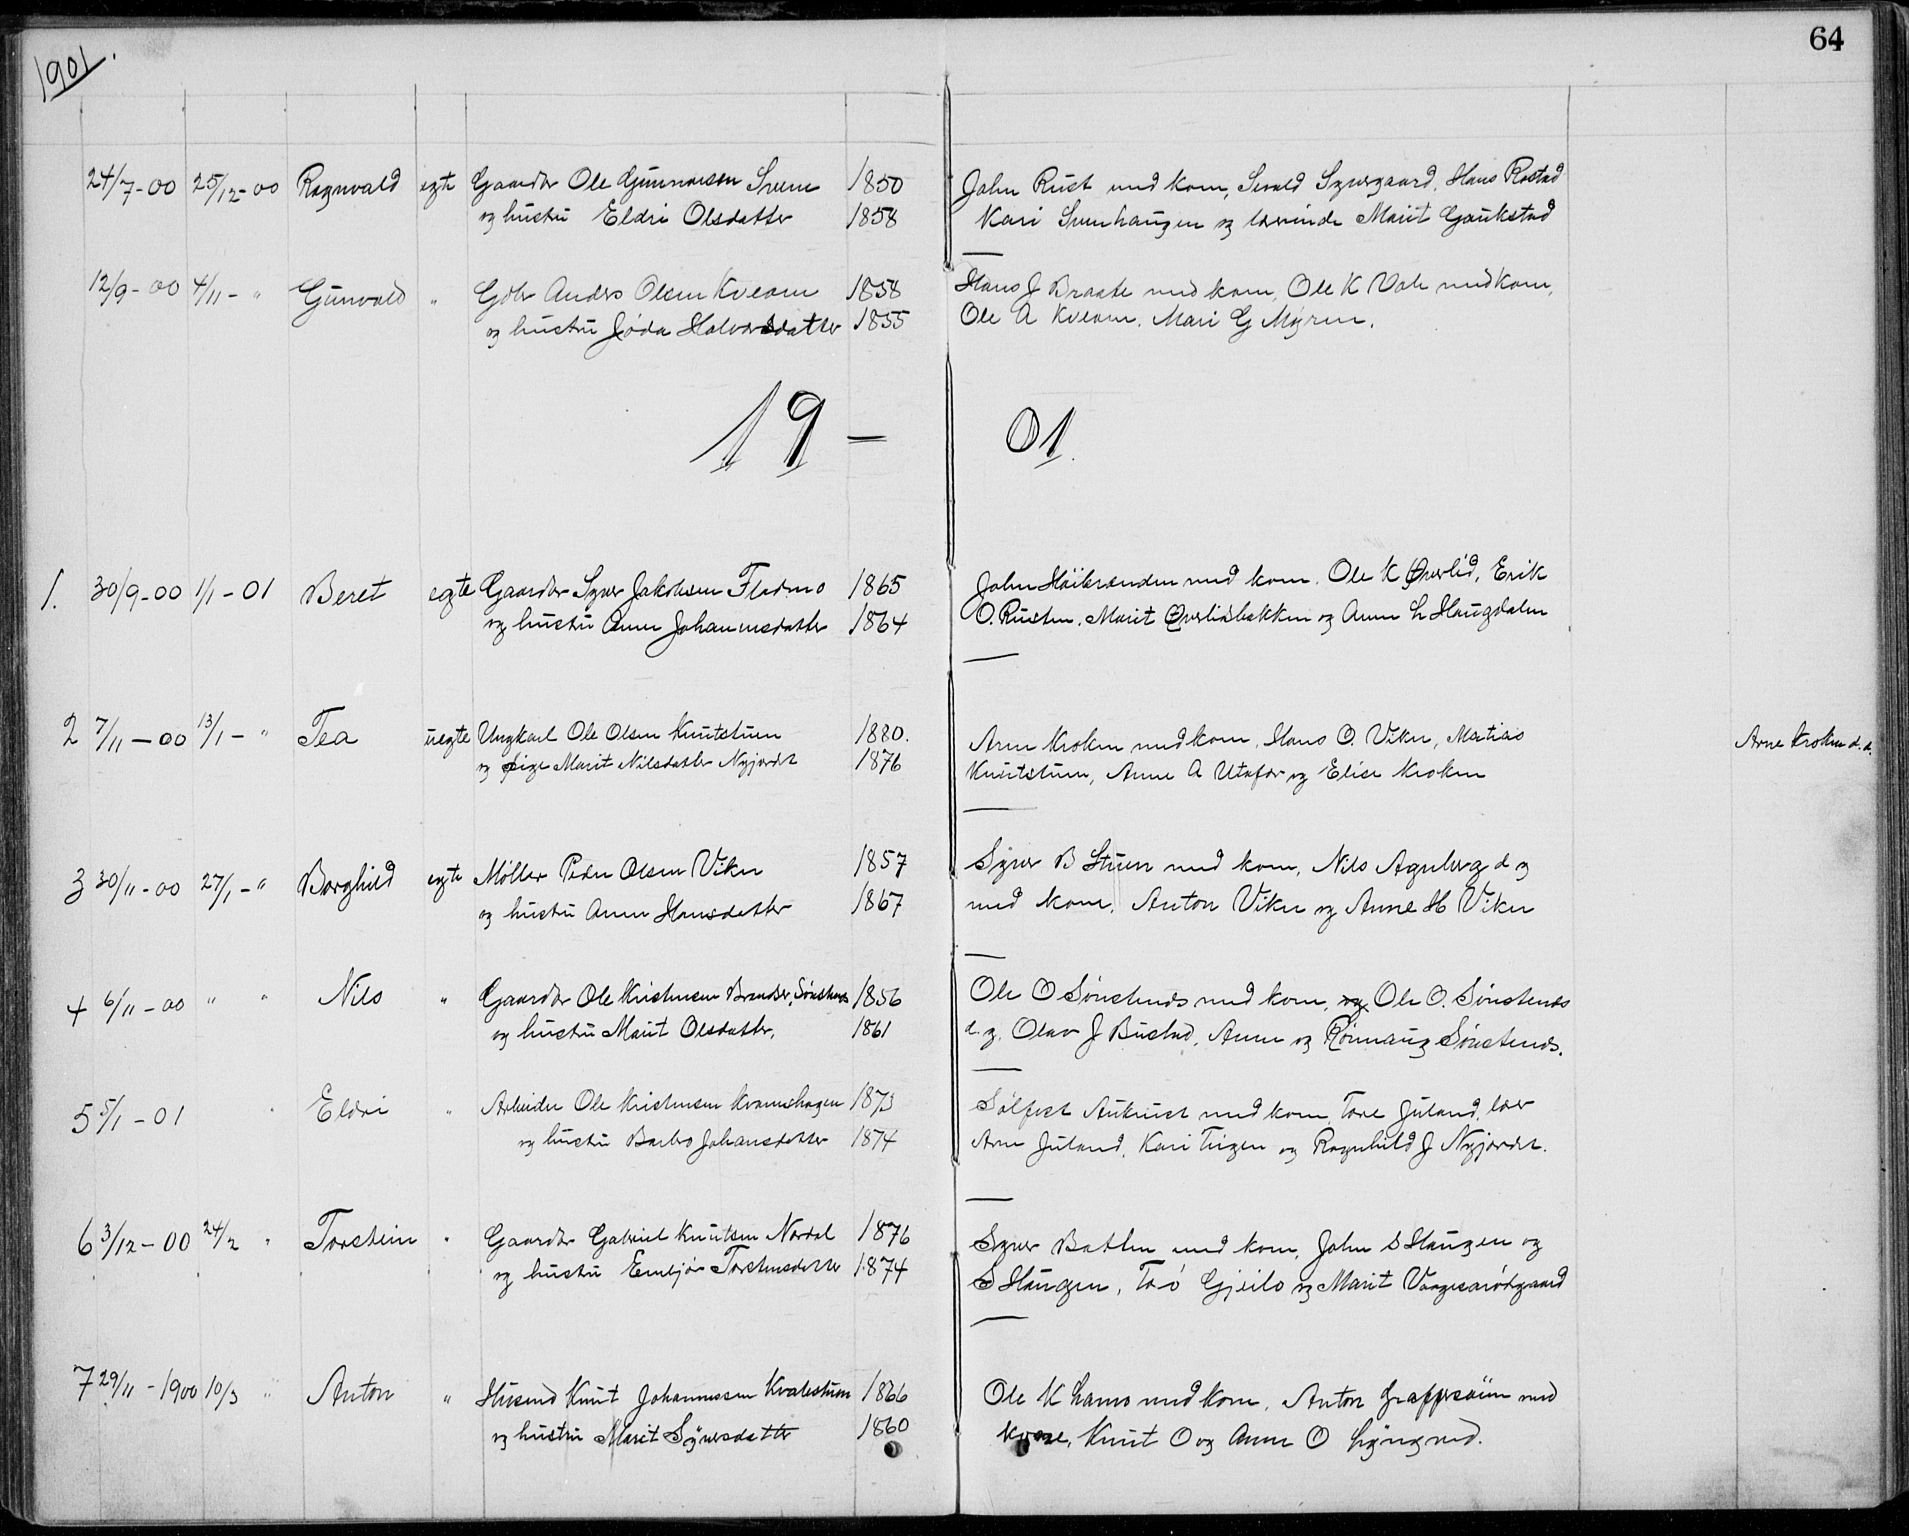 64
1901.
24/7-00 25/12-00 Ragnvald egte Gaardbr Ole Gunnarsen Sveen 1850 John Rust med kone, Sevald Synsgaard, Hans Rostad
og hustru Eldri Olsdatter 1858 Kari Sveenhaugen og lærerinde Marit Gaukstad
12/9-00 4/11-" Gunvald " Gdbr Anders Olsen Kveom 1858 Hans J Braate med kone, Ole K Vole med kone,
og hustru Jøda Halvorsdatter 1855 Ole A Kveom. Mari G Myren.
19- 01.
1. 30/9-00 1/1-01 Beret egte Gaardbr Syver Jakobsen Flodmo 1865 John Høibrænden med kone. Ole K Øverlid, Erik
og hustru Anne Johannesdatter 1864 O. Rusten, Marit Øverlidbakken og Anne L Haugdalen
2 7/11-00 13/1-" Tea uegte Ungkarl Ole Olsen Knutstuen 1880. Arne Kroken med kone, Hans O. Viken, Matias Arne Kroken d.æ.
og pige Marit Nilsdatter Nyjordet 1876 Knutstuen, Anne A Utafor og Elise Kroken
3 30/11-00 27/1-" Borghild egte Møller Peder Olsen Viken 1857 Syver B Stuen med kone, Nils Agnberg d y
og hustru Anne Hansdatter 1867 med kone, Anton Viken og Anne H Viken
4 6/11-00 " " Nils " Gaardbr Ole Kristensen Brandsr, Sønstends 1856 Ole O Sønstends med kone, og Ole O. Sønstends
og hustru Marit Olsdatter, 1861 d. y. Olav J Bustad, Anne og Rønnaug Sønstends.
5 5/1-01 " Eldri " Arbeider Ole Kristensen Kramshagen 1873 Sølfest Aukrust med kone Tore Juland, lær
og hustru Barbro Johansdatter 1874 Arne Juland, Kari Teigen og Ragnhild J Nyjordet.
6 3/12-00 24/2 " Torstein " Gaardbr Gabriel Knutsen Nordal 1876 Syver Botten med kone, John S Haugen og
og hustru Embjør Torstensdatter 1874 S Haugen, Gjeilo og Marit
7 29/11-1900 10/3 " Anton " Husmd Knut Johannessen Kvalestuen 1866 Ole K Lamo med kone, Anton med
og hustru Marit Syversdatter 1860 kone, Knut O og Anne O